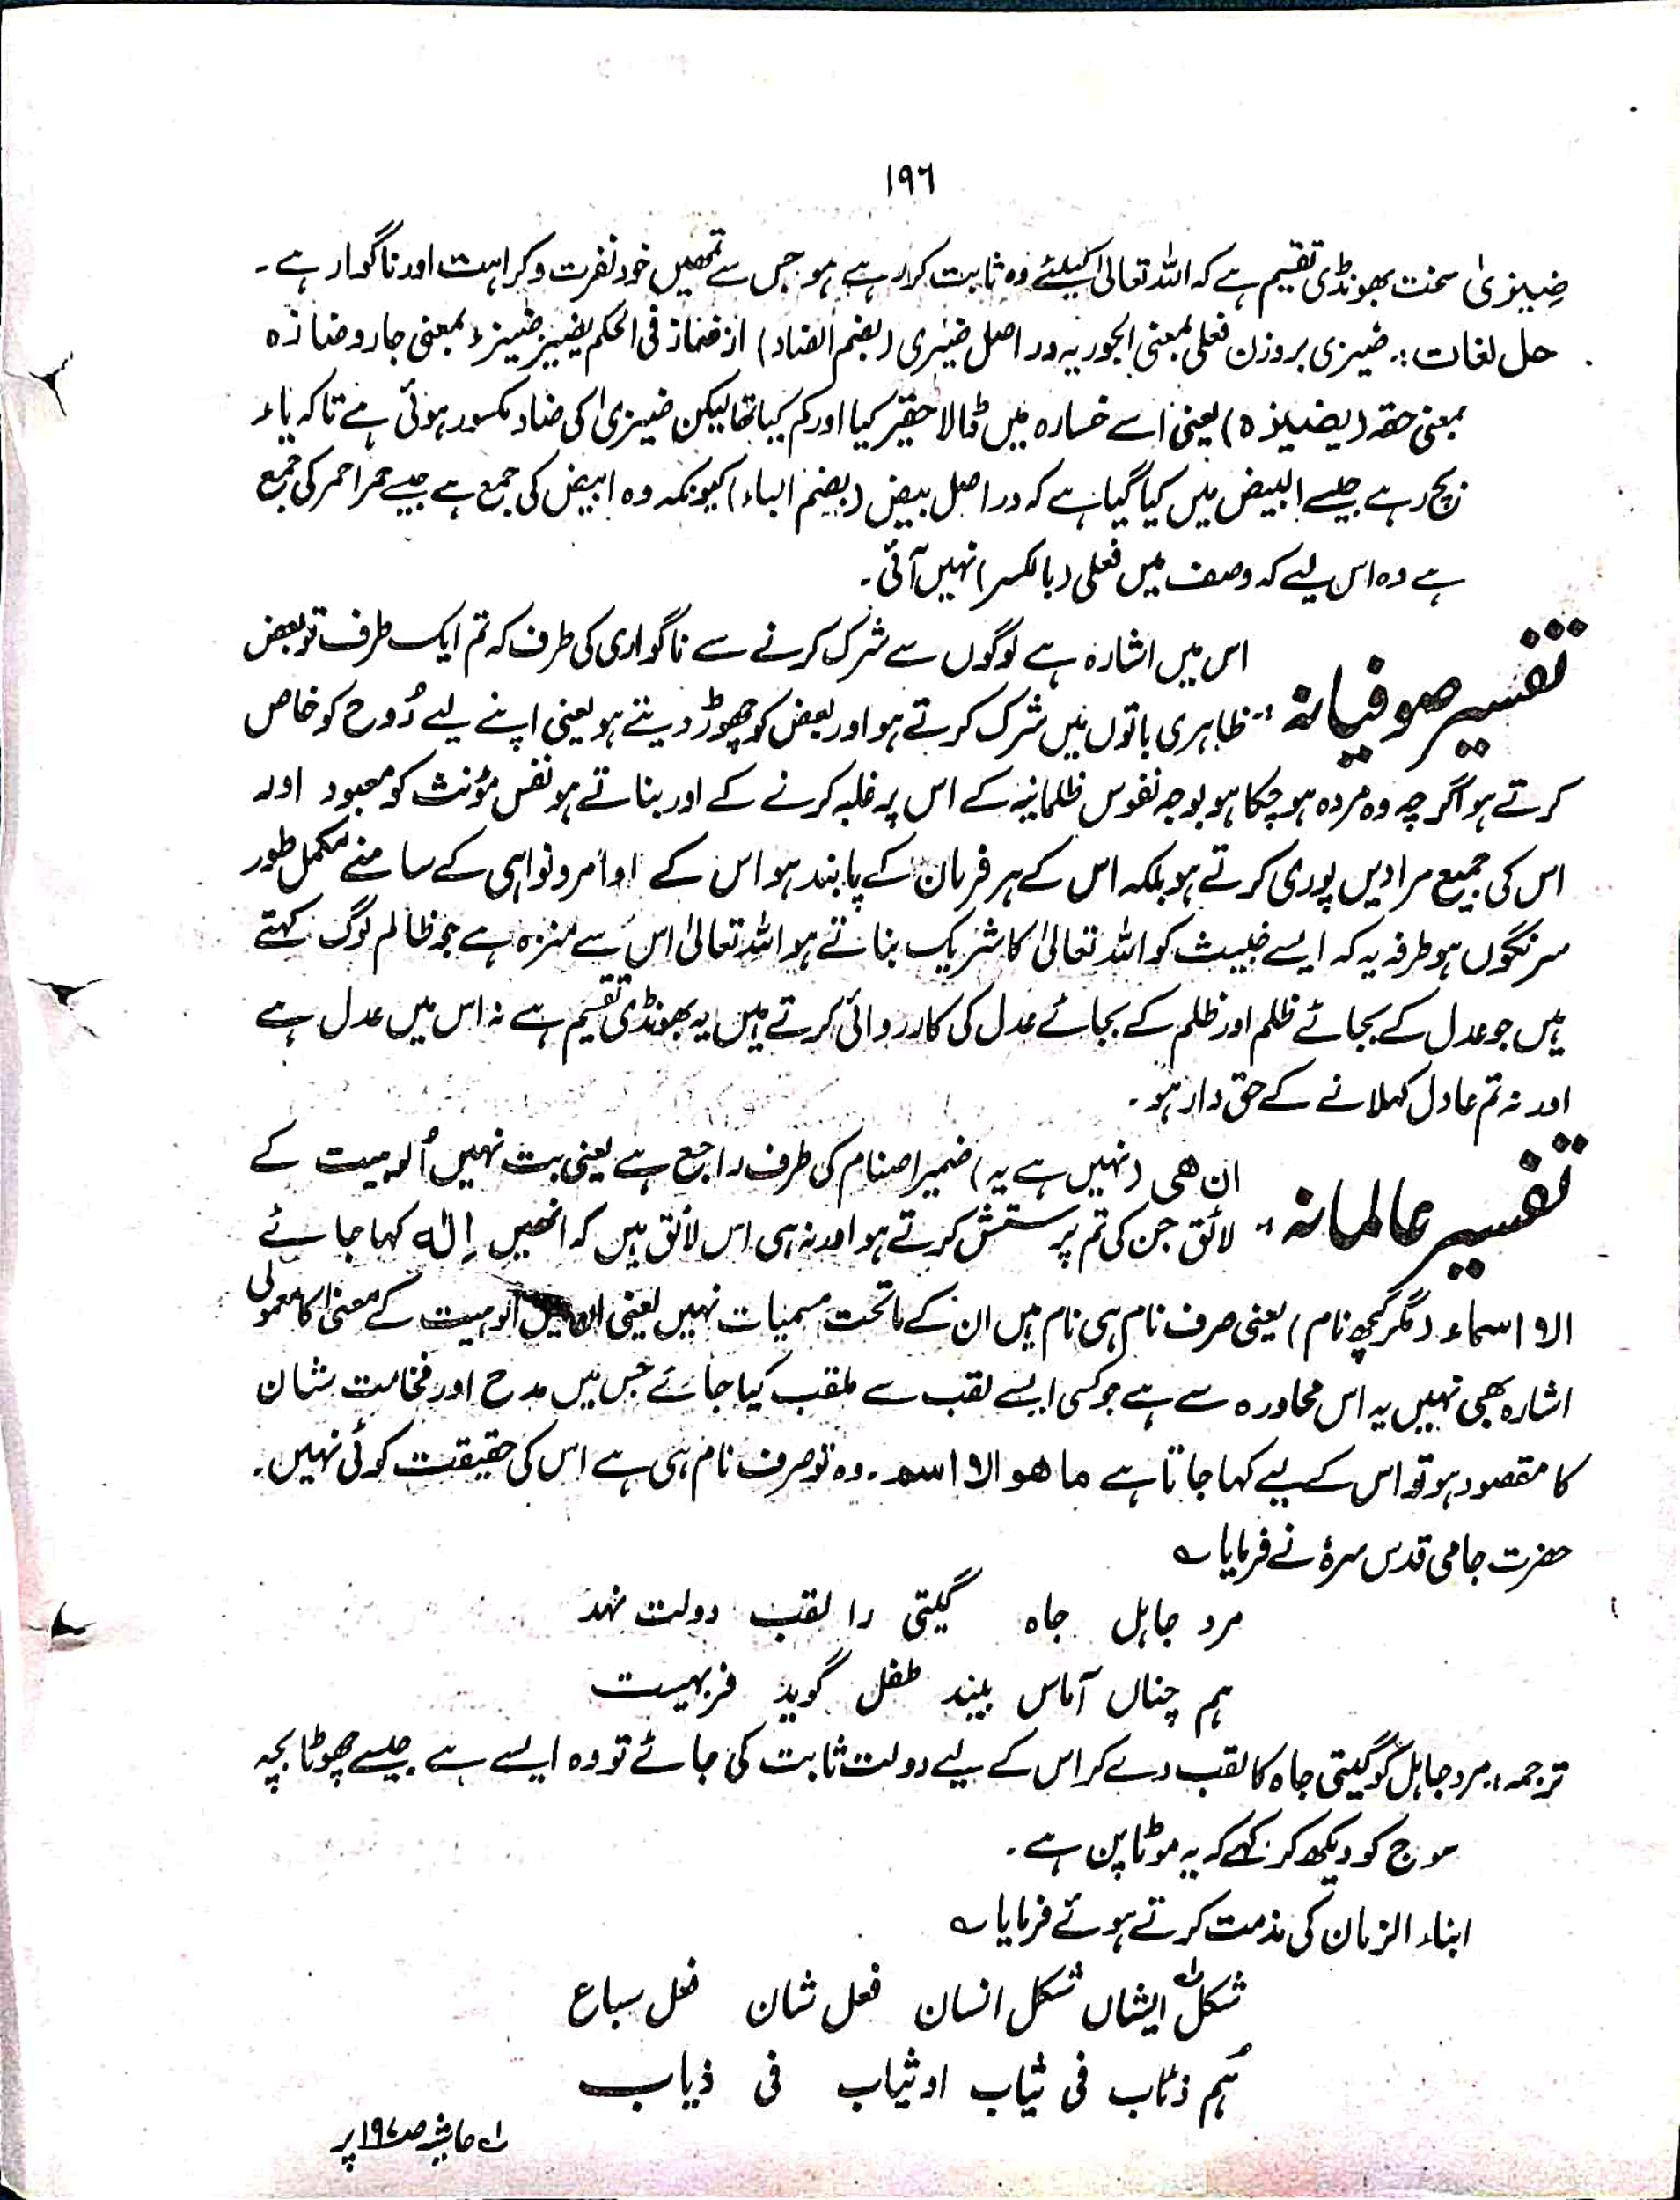 ١٩٦
ضِیزیٰ سخت بھونڈی تقسیم ہے کہ اللہ تعالیٰ کیلئے وہ ثابت کر رہے ہو جس سے تمھیں خود نفرت و کراہت اور ناگوار ہے۔
حل لغات:۔ ضیزی بروزن فعلی بمعنی الجوریہ در اصل ضیزی (بضم الضاد) از ضاز فی الحکم یضیز ضیزا بمعنی جار و ضازہ
بمعنی حقہ (یضیزہ) یعنی اسے خسارہ میں ڈالا حقیر کیا اور کم کیا تھا لیکن ضیزیٰ کی ضاد مکسور ہوئی ہے تاکہ یاء
بچ رہے جیسے البیض میں کیا گیا ہے کہ دراصل بیض (بضم الباء) کیونکہ وہ ابیض کی جمع ہے جیسے حمر احمر کی جمع
ہے وہ اس لیے کہ وصف میں فعلی (بالکسر) نہیں آئی۔
اس میں اشارہ ہے لوگوں سے شرک کرنے سے ناگواری کی طرف کہ تم ایک طرف تو بعض
تفسیر صوفیانہ:۔ ظاہری باتوں میں شرک کرتے ہو اور بعض کو چھوڑ دیتے ہو یعنی اپنے لیے رُوح کو خاص
کرتے ہو اگرچہ وہ مردہ ہو چکا ہو بوجہ نفوس ظلمانیہ کے اس پر غلبہ کرنے کے اور بناتے ہو نفس مؤنث کو معبود اور
اس کی جمیع مرادیں پوری کرتے ہو بلکہ اس کے ہر فرمان کے پابند ہو اس کے اوامر و نواہی کے سامنے مکمل طور
سرنگوں ہو طرفہ یہ کہ ایسے خبیث کو اللہ تعالیٰ کا شریک بناتے ہو اللہ تعالیٰ اس سے منزہ ہے جو ظالم لوگ کہتے
ہیں جو عدل کے بجائے ظلم اور ظلم کے بجائے عدل کی کارروائی کرتے ہیں یہ بھونڈی تقسیم ہے نہ اس میں عدل ہے
اور نہ تم عادل کہلانے کے حق دار ہو۔
ان ھی (نہیں ہے یہ) ضمیر اصنام کی طرف راجع ہے یعنی بت نہیں اُلوہیت کے
تفسیر عالمانہ:۔ لائق جن کی تم پرستش کرتے ہو اور نہ ہی اس لائق ہیں کہ انھیں اِلٰہ کہا جائے
الا اسماء (مگر کچھ نام) یعنی صرف نام ہی نام ہیں ان کے ماتحت مسمیات نہیں یعنی ان میں الوہیت کے معنیٰ کا معمولی
اشارہ بھی نہیں یہ اس محاورہ سے ہے جو کسی ایسے لقب سے ملقب کیا جائے جس میں مدح اور فخامت شان
کا مقصود ہو تو اس کے لیے کہا جاتا ہے ما ھو الا اسم۔ وہ تو صرف نام ہی ہے اس کی حقیقت کوئی نہیں۔
حضرت جامی قدس سرہٗ نے فرمایا ؎
مرد جاہل جاہ گیتی را لقب دولت نہد
ہم چناں آماس بیند طفل گوید فربہیست
ترجمہ:۔ مرد جاہل کو گیتی جاہ کا لقب دے کر اس کے لیے دولت ثابت کی جائے تو وہ ایسے ہے جیسے چھوٹا بچہ
سوج کو دیکھ کر کہے کہ یہ موٹا پن ہے۔
ابناء الزمان کی مذمت کرتے ہوئے فرمایا ؎
شکل ایشاں شکل انسان فعل شان فعل سباع
ہُم ذئاب فی ثیاب او ثیاب فی ذیاب
لہ حاشیہ صـ١٩٧ پر